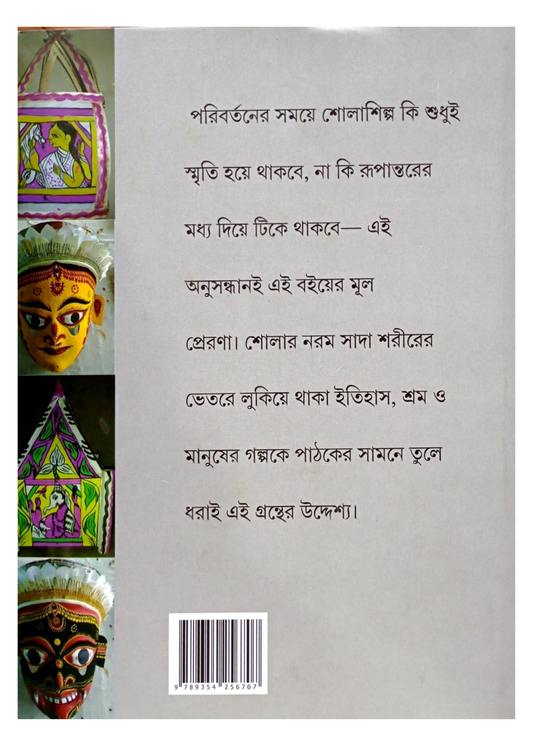 পরিবর্তনের সময়ে শোলাশিল্প কি শুধুই
স্মৃতি হয়ে থাকবে, না কি রূপান্তরের
মধ্য দিয়ে টিকে থাকবে— এই
অনুসন্ধানই এই বইয়ের মূল
প্রেরণা। শোলার নরম সাদা শরীরের
ভেতরে লুকিয়ে থাকা ইতিহাস, শ্রম ও
মানুষের গল্পকে পাঠকের সামনে তুলে
ধরাই এই গ্রন্থের উদ্দেশ্য।
9 789354 256707